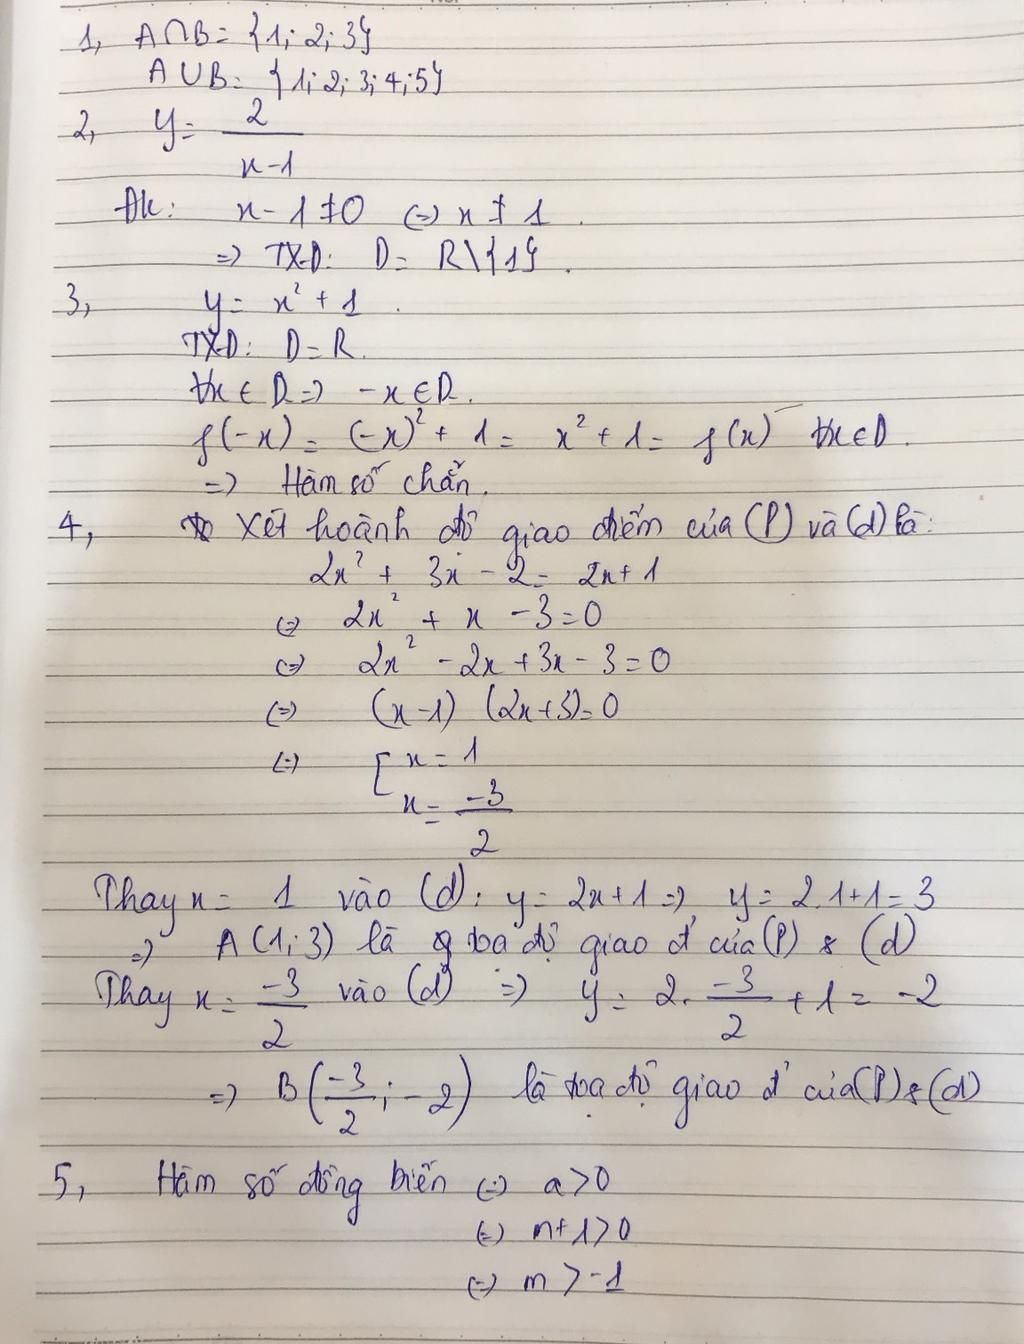 1, A∩B = {1; 2; 3}
A∪B = {1; 2; 3; 4; 5}
2, y = 2/(x-1)
Đk: x - 1 ≠ 0 (=) x ≠ 1.
=> TXĐ: D = R\{1}.
3, y = x² + 1.
TXĐ: D = R.
∀x ∈ D => -x ∈ D.
f(-x) = (-x)² + 1 = x² + 1 = f(x) ∀x ∈ D.
=> Hàm số chẵn.
4, Xét hoành độ giao điểm của (P) và (d) là:
2x² + 3x - 2 = 2x + 1
(=) 2x² + x - 3 = 0
(=) 2x² - 2x + 3x - 3 = 0
(=) (x-1) (2x+3) = 0
(=) [ x = 1
x = -3/2
Thay x = 1 vào (d): y = 2x + 1 => y = 2.1+1 = 3
=> A(1; 3) là toạ độ giao đ' của (P) & (d)
Thay x = -3/2 vào (d) => y = 2. -3/2 + 1 = -2
=> B(-3/2; -2) là toạ độ giao đ' của (P) & (d)
5, Hàm số đồng biến (=) a > 0
(=) m + 1 > 0
(=) m > -1